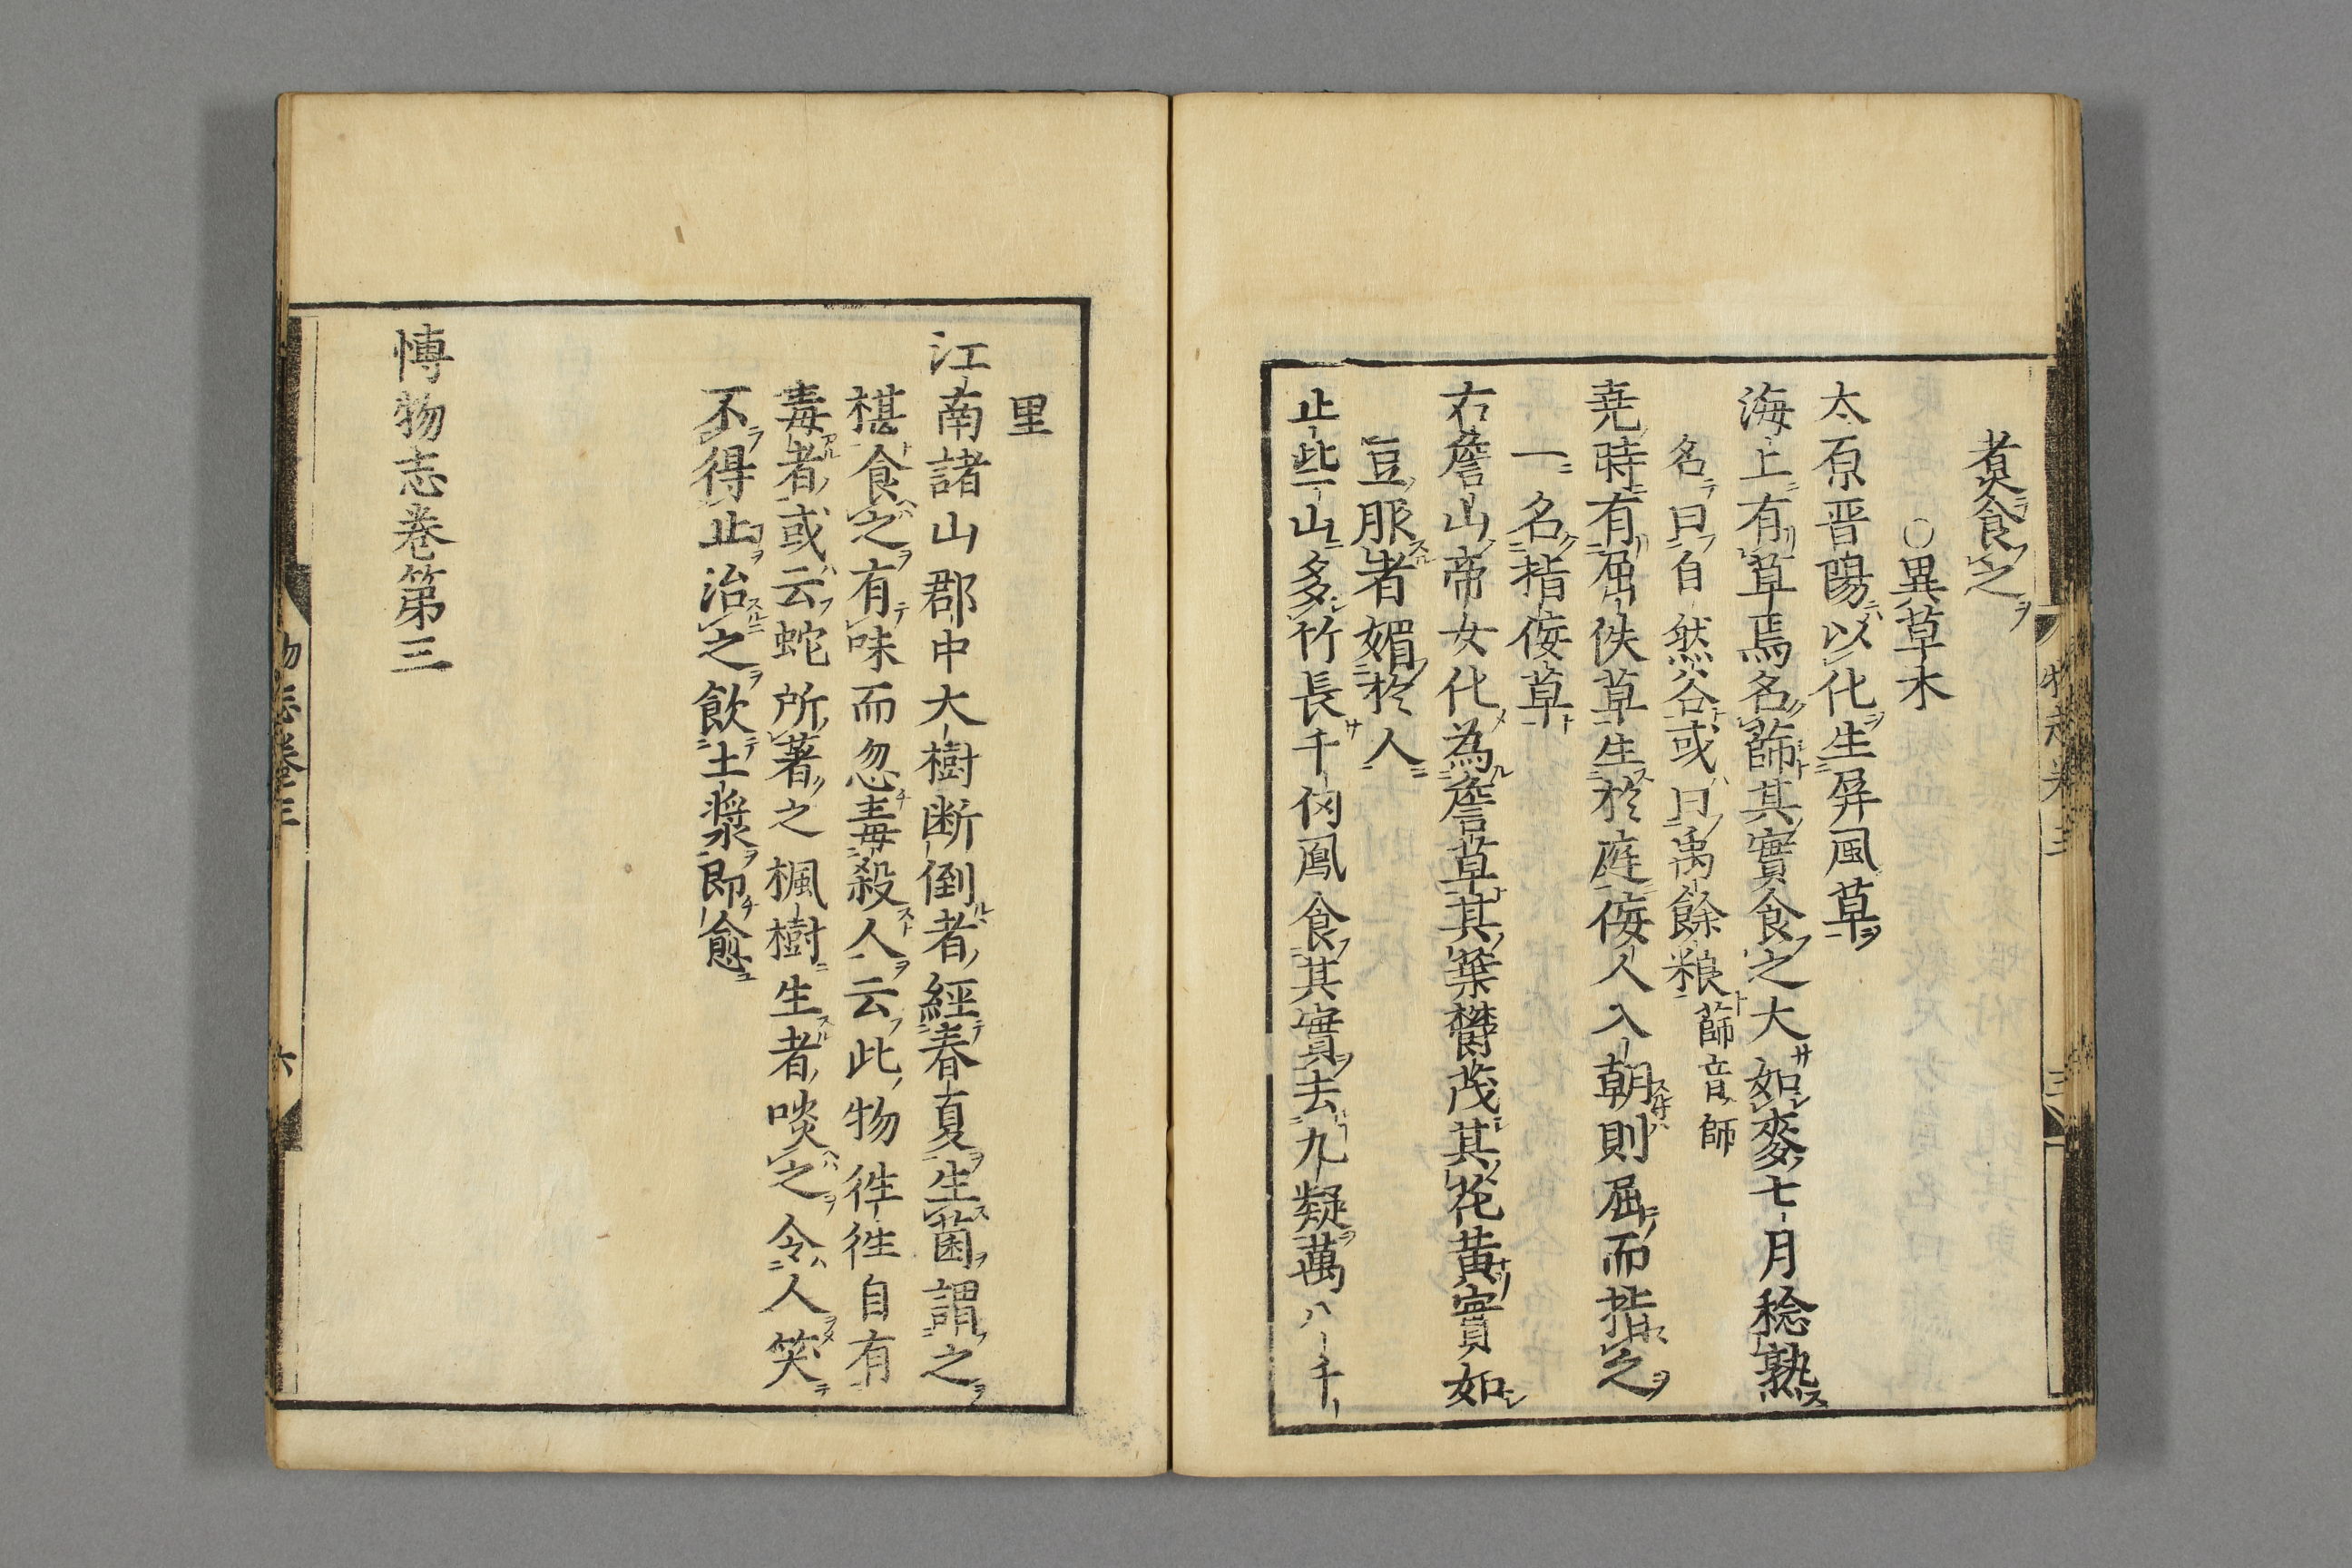 煮食之
○異草木
太原晋陽以化生屏風草
海上有草焉名蒒其實食之大如麥七月稔熟
名曰自然谷或曰禹餘粮蒒音師
堯時有屈佚草生於庭佞人入朝則屈而指之
一名指佞草
右詹山帝女化為詹草其葉欝茂其花黄實如
豆服者媚於人
止些山多竹長千仞鳳食其實去九疑萬八千
里
江南諸山郡中大樹断倒者經春夏生菌謂之
椹食之有味而忽毒殺人云此物徃徃自有
毒者或云蛇所著之楓樹生者啖之令人笑
不得止治之飲土漿即愈
博物志巻第三
物志巻三
六